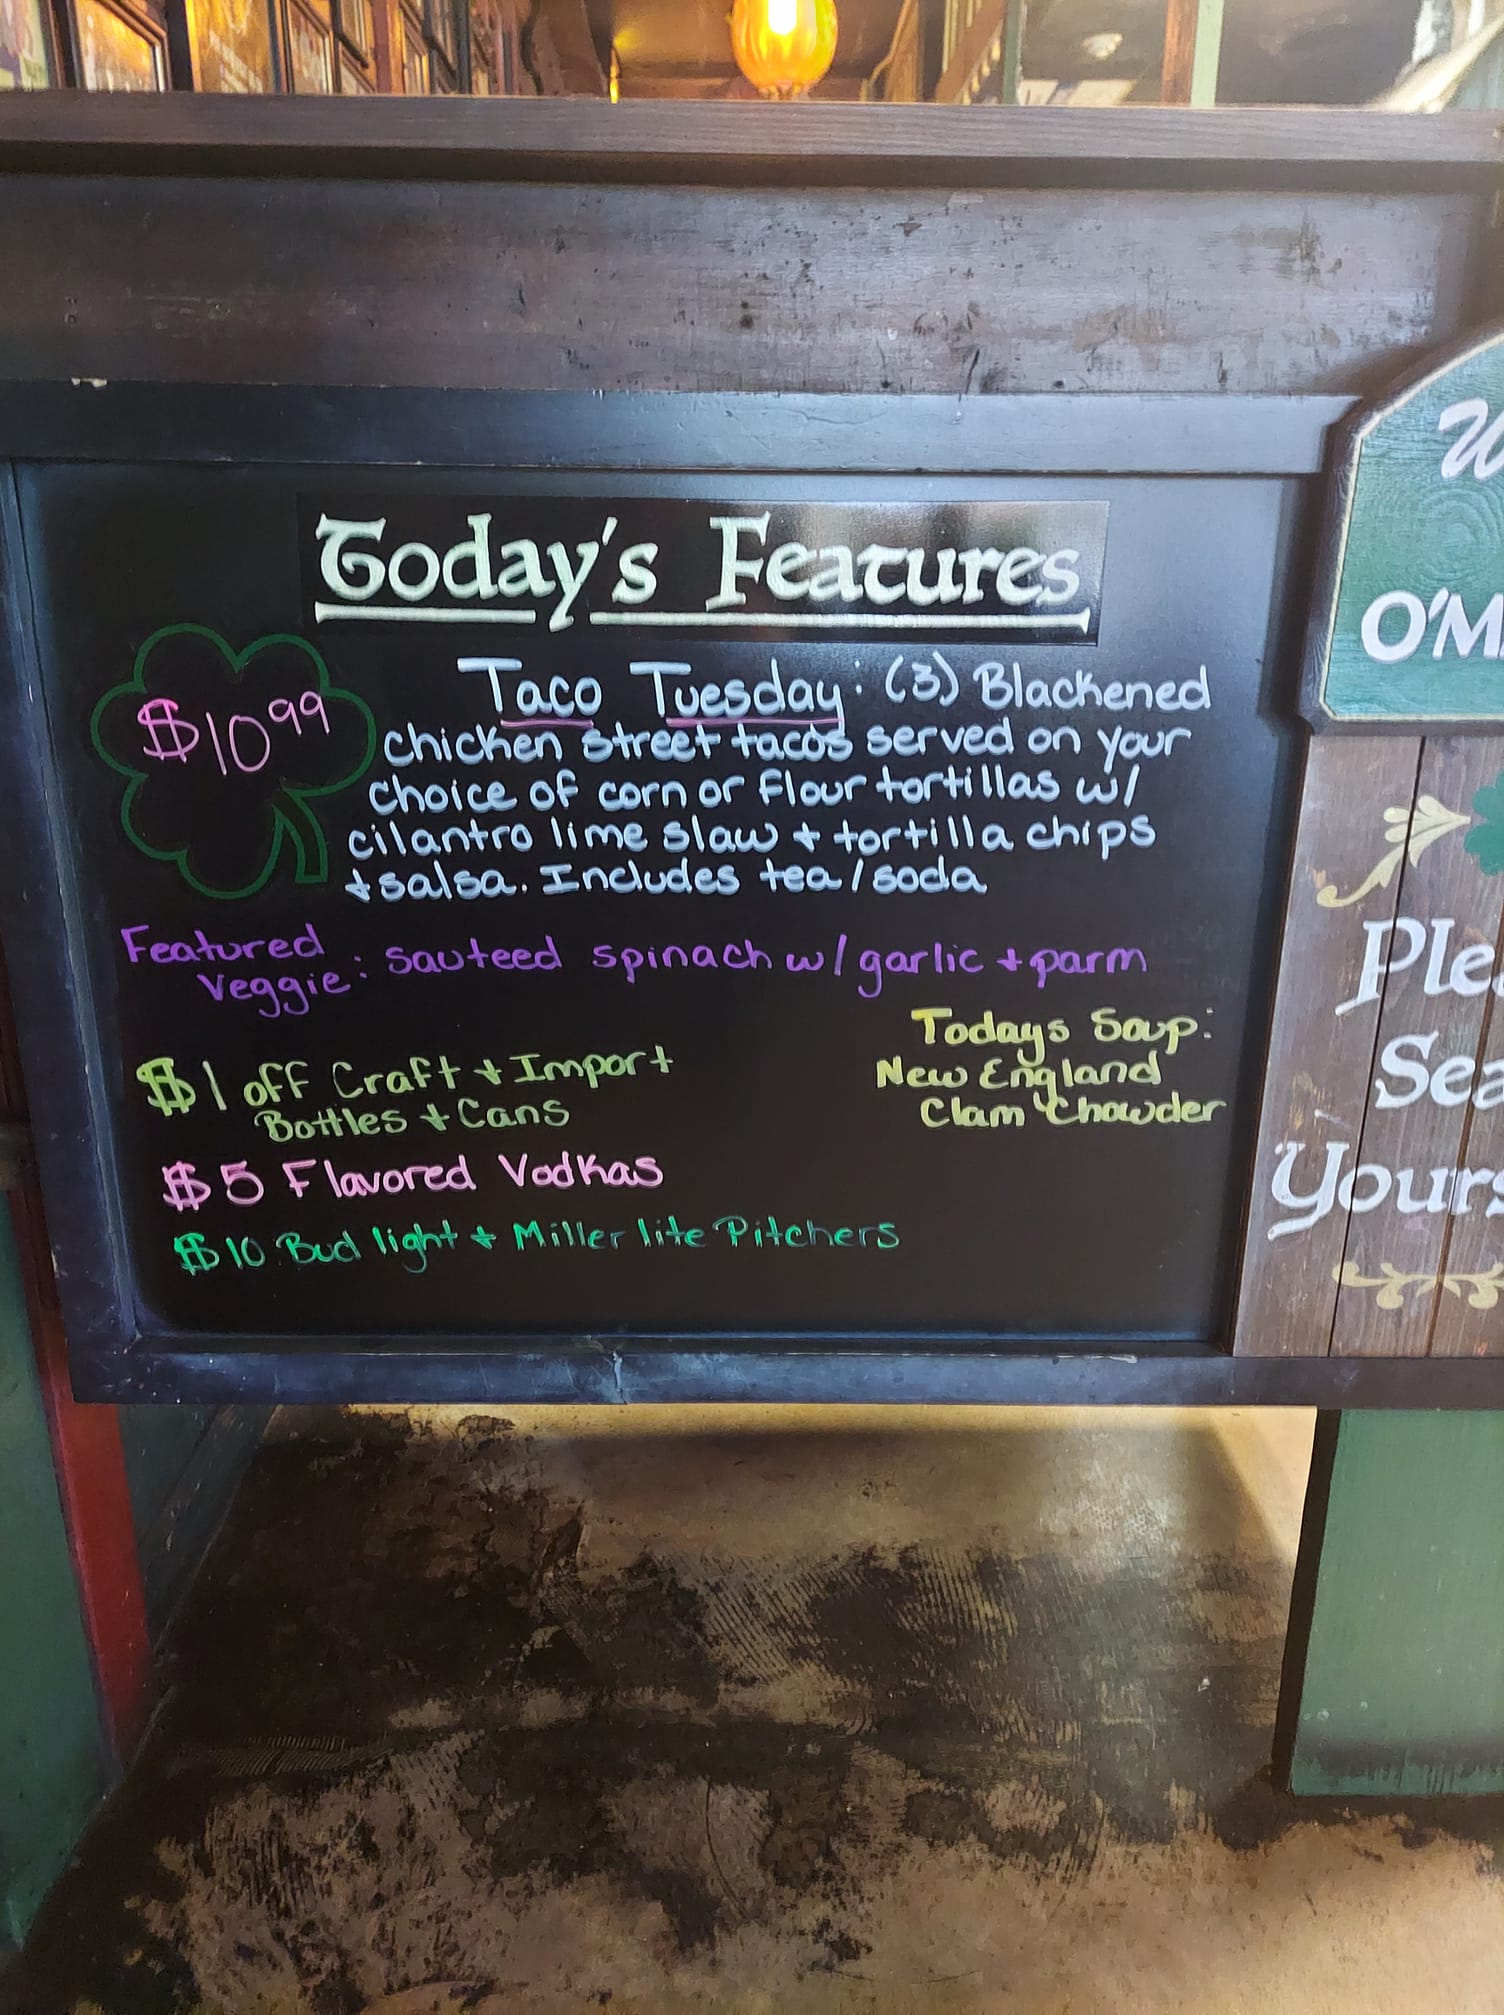 Today's Features
$10.99
Taco Tuesday: (3) Blackened
chicken street tacos served on your
choice of corn or flour tortillas w/
cilantro lime slaw + tortilla chips
+ salsa. Includes tea/soda
Featured
Veggie: sauteed spinach w/ garlic + parm
Todays Soup:
New England
Clam Chowder
$1 off Craft + Import
Bottles + Cans
$5 Flavored Vodkas
$10 Bud light + Miller lite Pitchers
W
O'M
Plea
Sea
Yours